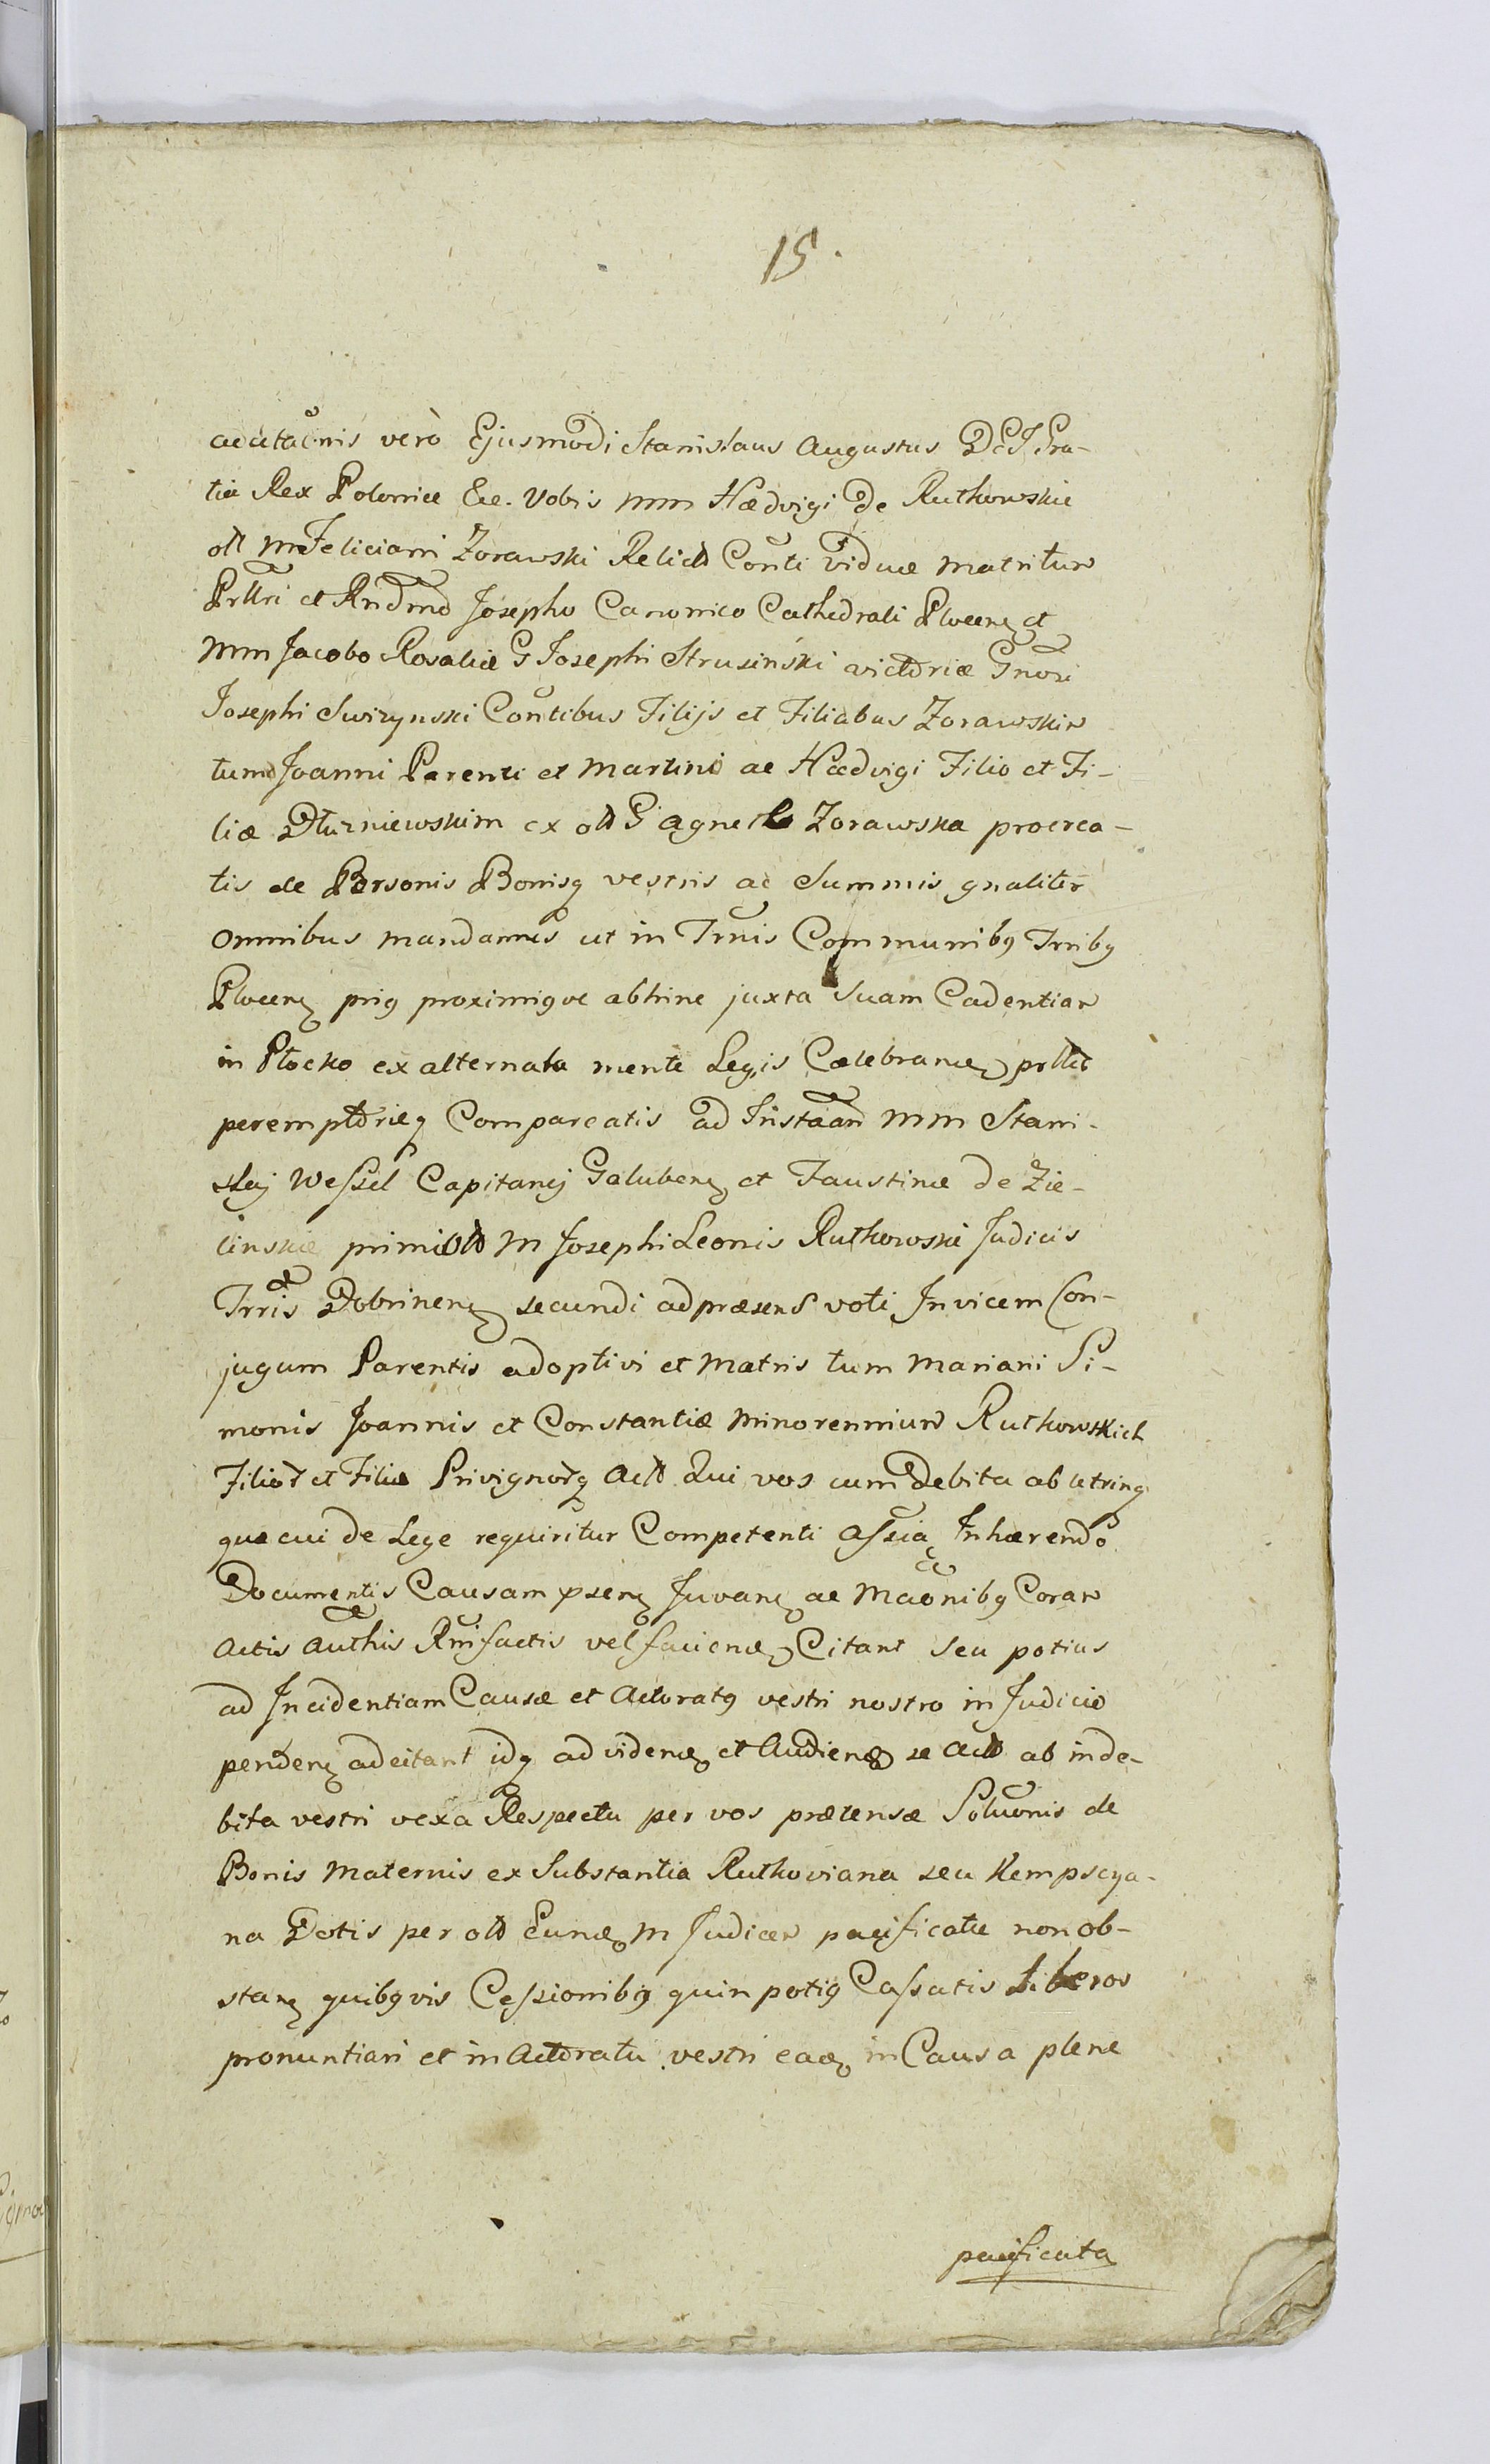 15.
adcitaõnis verò Ejusmodi Stanislaus Augustus DEI Gra-
tia Rex Poloniæ &c. Vobis mm Hædvigi de Rutkowskie
olt M Feliciani Zorawski Relictæ Conti viduæ matri tum
Prltri et Rndmo Josepho Canonico Cathedrali Plocen et
mm Jacobo Rosaliæ G Josephi Strusinski victoriæ Gnosi
Josephi Swizynski Contibus Filijs et Filiabus Zorawskim
tum Joanni Parenti et Martino ac Hædvigi Filio et Fi-
liæ Dłuzniewskim ex olt G Agnete Zorawska procrea-
tis de Personis Bonisq vestris ac Summis gnaliter
omnibus mandamus ut in Trnis Communibq Trribq
Plocen priq proximiqve abhinc juxta Suam Cadentiam
in Płocko ex alternata mente Legis Celebrandæ prltes
peremptorieq Compareatis ad Instaan mm Stani-
slaj Wessel Capitanej Golubens et Faustinæ de Zie-
linskie primi olt M Josephi Leonis Rutkowski Judicis
Trris Dobrinen secundi ad præsens voti Invicem Con-
jugum Parentis adoptivi et Matris tum Mariani Si-
monis Joannis et Constantiæ minorennium Rutkowskich
Filior et Filiæ Privignorq Act Qui vos cum Debita ab utrinq
qua cui de Lege requiritur Competenti assia Inhærendo
Documentis Causam psen Juvan ac Maonibq Coram
Actis Authis Rni factis vel faciend Citant seu potius
ad Incidentiam Causæ et Actoratq vestri nostro in Judicio
penden adcitant idq ad vidend et Audiend se Act ab inde-
bita vestri vexa Respectu per vos prætensæ Solutionis de
Bonis Maternis ex Substantia Rutkoviana seu Kempscya-
na Dotis per olt Eund M Judicem pacificatæ non ob-
stan quibqvis Cessionibq quin potiq Cassatis Liberos
pronuntiari et in Actoratu vestri ead in Causa plene
pacificata